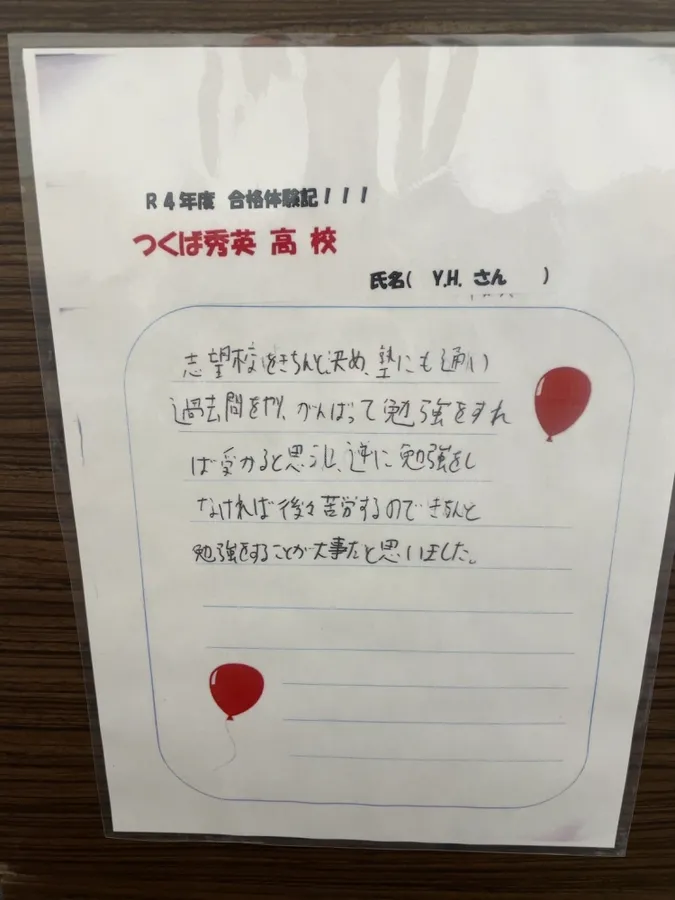 R4年度 合格体験記!!!
つくば秀英 高 校
氏名( Y.H. さん )
志望校をきちんと決め、塾にも通い
過去問をやり、がんばって勉強をすれ
ば受かると思うし、逆に勉強をし
なければ後々苦労するのできちんと
勉強をすることが大事だと思いました。